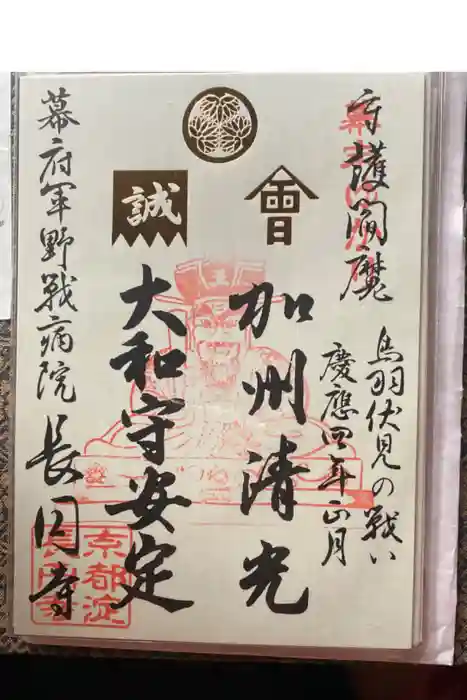 守護閻魔
鳥羽伏見の戦い
慶應四年正月
會
加州清光
誠
大和守安定
幕府軍野戦病院
長円寺
王
京都淀
長円寺